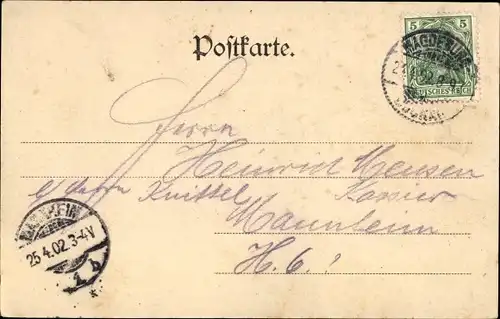 Postkarte.
5 5
DEUTSCHES REICH
MAGDEBURG
Herrn
Heinrich Meusen
Knittel
Mannheim
H. 6!
MANNHEIM
25.4.02.3-4V
1 b